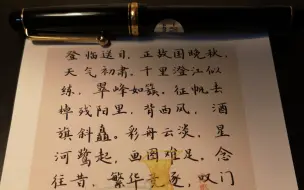 登临送目，正故国晚秋，
天气初肃。千里澄江似
练，翠峰如簇。征帆去
棹残阳里，背西风，酒
旗斜矗。彩舟云淡，星
河鹭起，画图难足。念
往昔，繁华竞逐，叹门